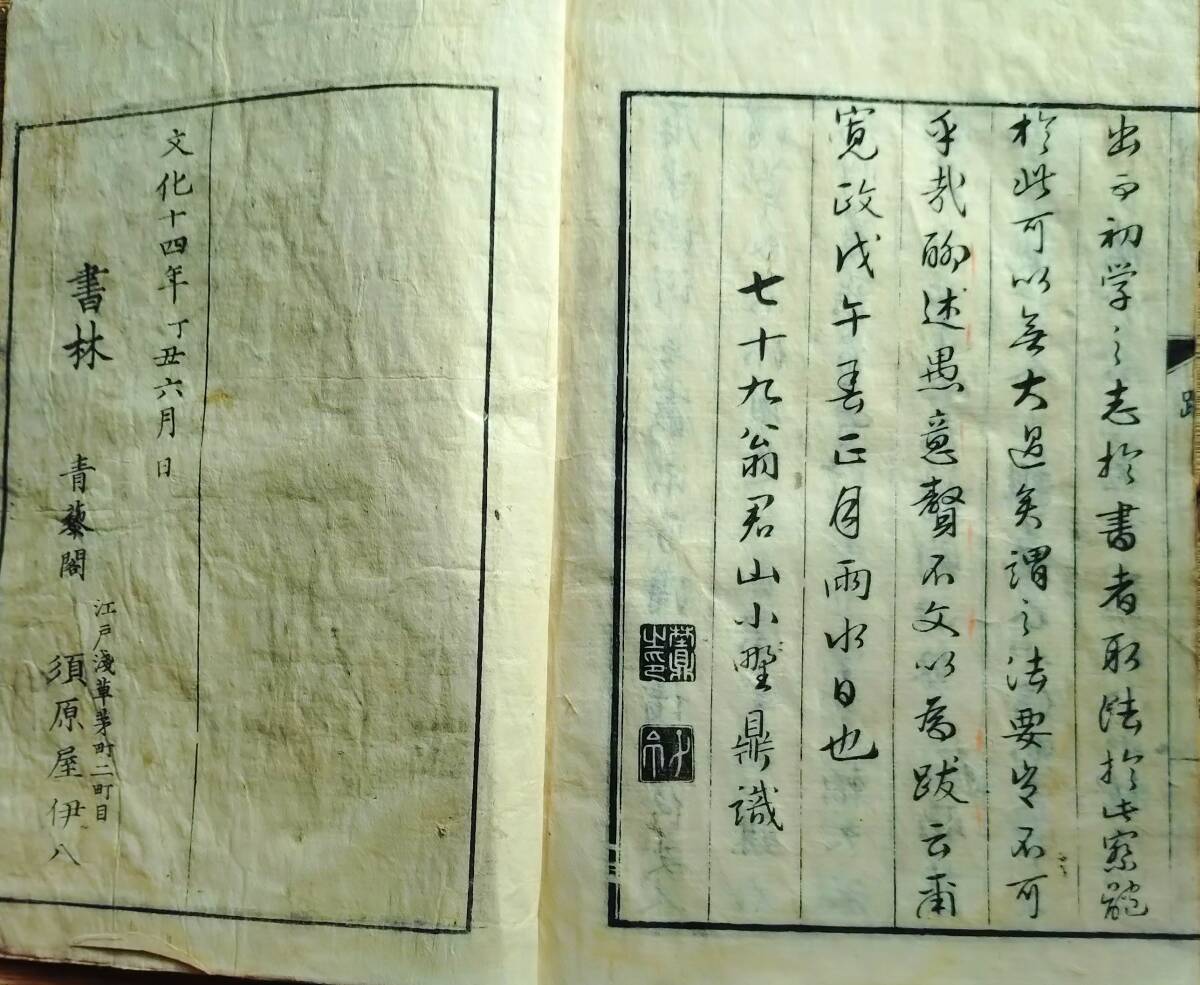 出而初学之志於書者取法於此察體
於此可以無大過矣謂之法要豈不可
乎哉聊述愚意贅不文以為跋云甭
寛政戊午春正月雨水日也
七十九翁君山小野鼎識
跋
文化十四年丁丑六月日
書林 青藜閣 江戸淺草茅町二町目
須原屋伊八